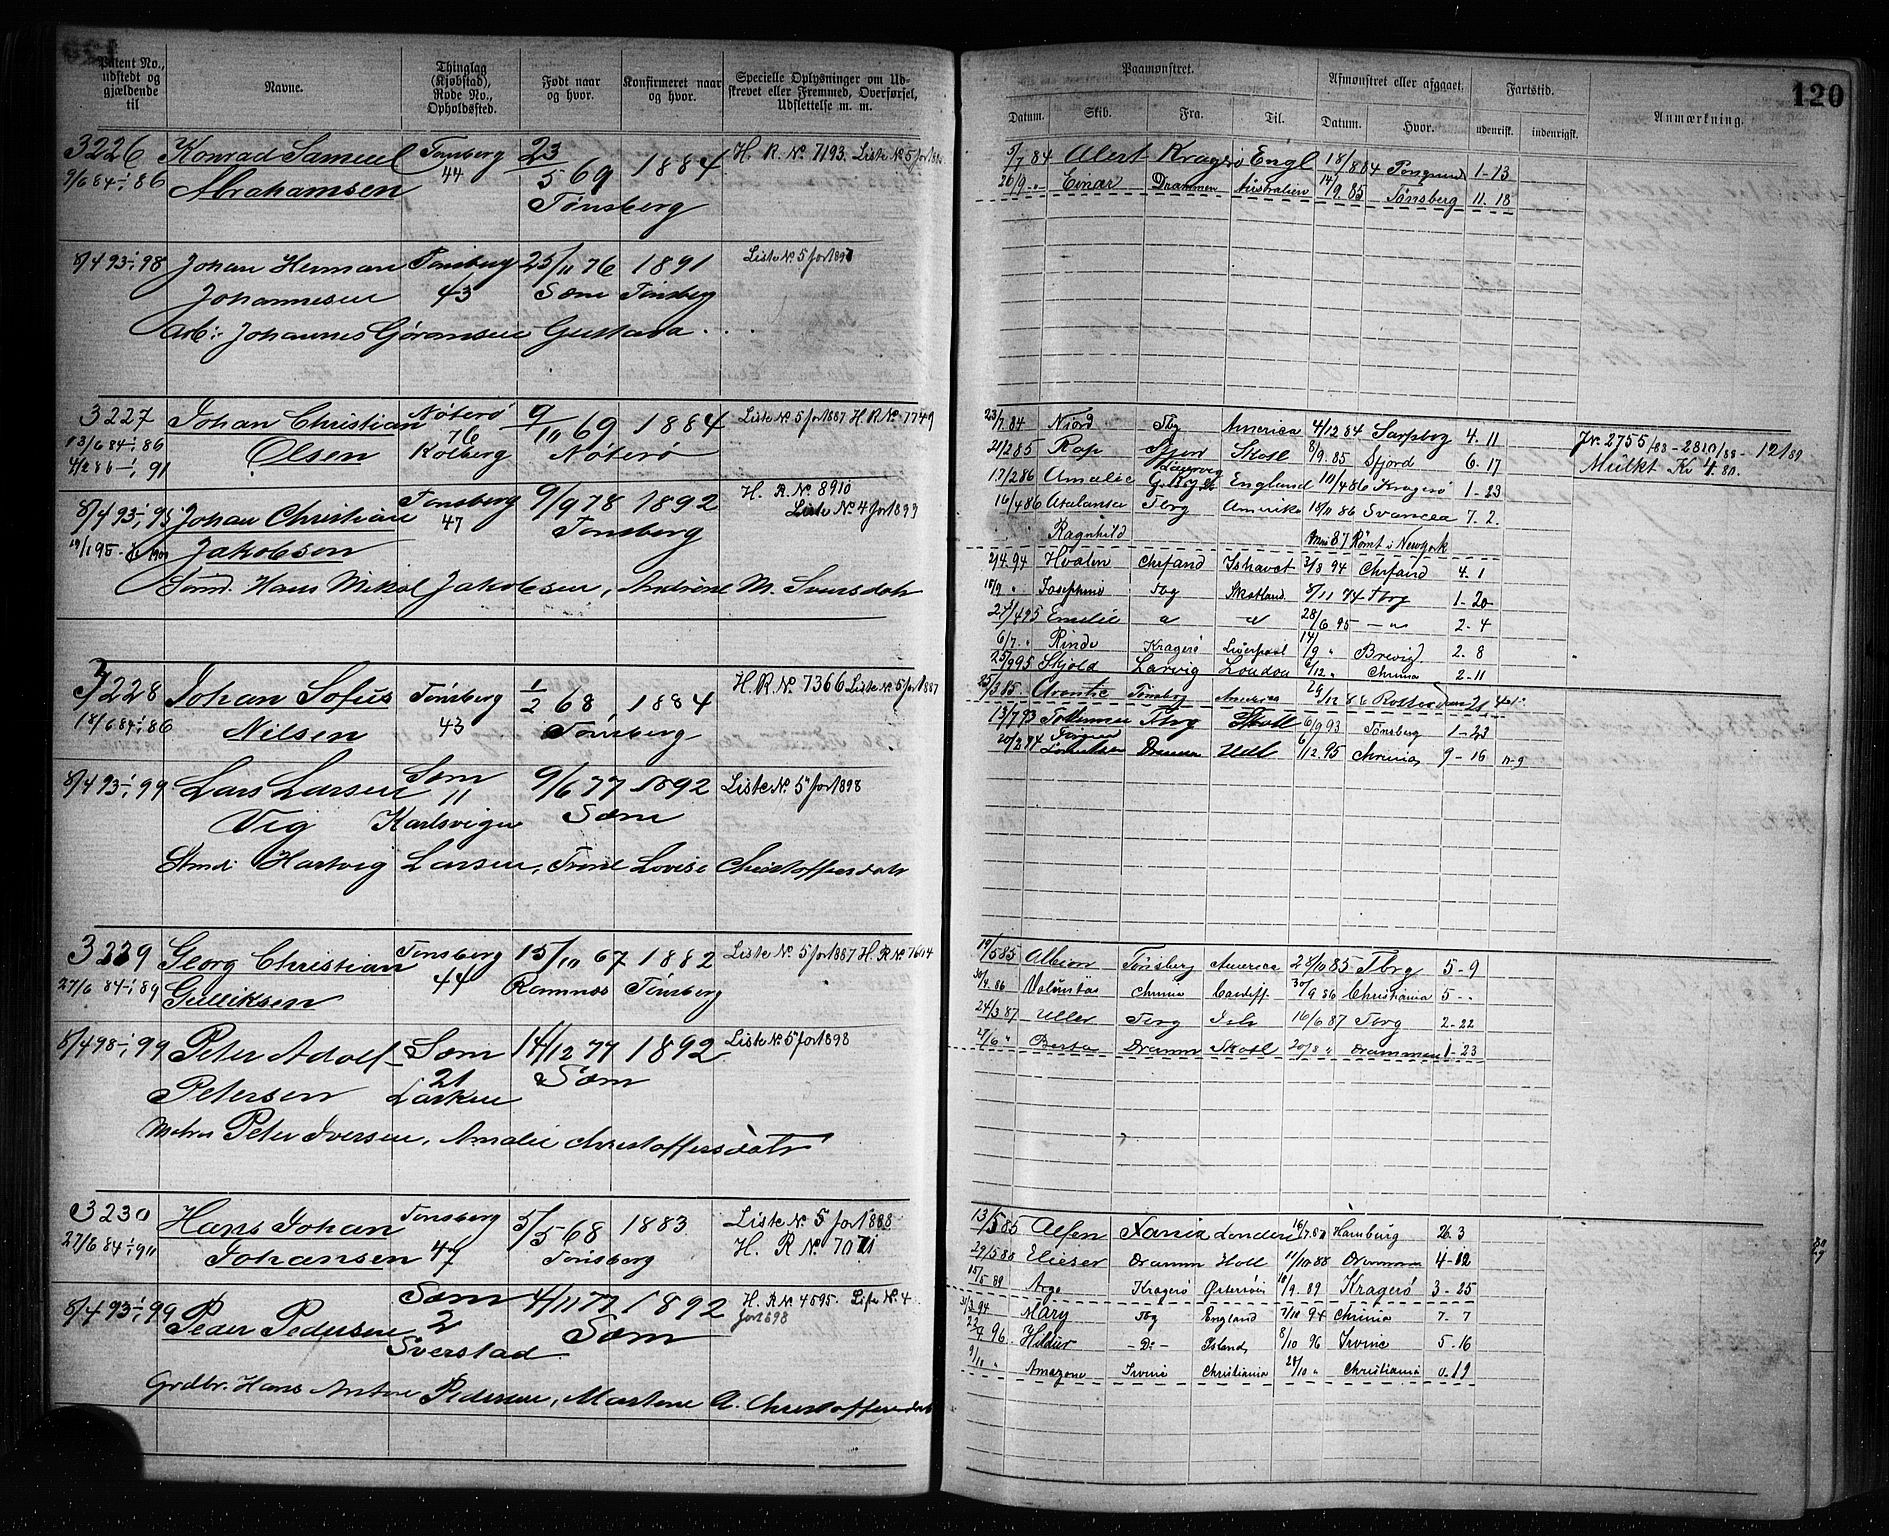 120
Patent No., udstedt og gjældende til
Navne.
Thinglag (Kjøbstad), Rode No., Opholdssted.
Født naar og hvor.
Konfirmeret naar og hvor.
Specielle Oplysninger om Udskrevet eller Fremmed, Overførsel, Udslettelse m. m.
Paamønstret.
Afmønstret eller afgaaet.
Fartstid.
Anmærkning.
Datum. Skib. Fra. Til. Datum. Hvor. udenrigsk. indenrigsk.
3226 Konrad Samuel Tønsberg 23/5 69 1884 H. R. No 7193. Liste No 5 for
9/6 84 1/1 86 Abrahamsen 44 Tønsberg
8/4 93 1/1 98 Johan Herman Tønsberg 25/11 76 1891 Liste No 5 for 1897
Johannesen 43 Sæm Tønsberg
Arb: Johannes Göransen Gustava
3227 Johan Christian Nøterø 9/10 69 1884 Liste No 5 for 1887 H. R. No 7749
13/6 84 1/1 86 Olsen 76 Kolberg Nøterø
4/2 86 1/1 91
8/4 93 1/1 95 Johan Christian Tønsberg 9/9 78 1892 H. R. No 8910
Liste No 4 for 1899
Jakobsen 47 Tønsberg
Smd. Hans Mikal Jakobsen, Andrine M. Svensdatr
3228 Johan Sofus Tønsberg 1/2 68 1884 H. R. No 7366 Liste No 5 for 1887
18/6 84 1/1 86 Nilsen 43 Tønsberg
8/4 93 1/1 99 Lars Larsen Sæm 9/6 77 1892 Liste No 5 for 1898
Vig 11 Karlsvigen Sæm
Stmd: Hartvig Larsen, Trine Lovise Christoffersdatr
3229 Georg Christian Tønsberg 15/10 67 1882 Liste No 5 for 1887 H. R. No 7604
27/6 84 1/1 89 Gulliksen 44 Ramnæs Tønsberg
8/4 98 1/1 99 Peter Adolf Sæm 14/12 77 1892 Liste No 5 for 1898
Petersen 21 Sæm
Peter Iversen, Amalie Christoffersdatr
3230 Hans Johan Tønsberg 5/5 68 1883 Liste No 5 for 1888
27/6 84 1/1 90 Johansen 47 Tønsberg H. R. No 7071
8/4 93 1/1 99 Peder Pedersen Sæm 4/11 77 1892 H. R. No 4595. Liste No 4 for 1898
2 Sverstad Sæm
Grdbr. Hans Anton Pedersen, Martine A. Christoffersdatr
5/7 84 Alert Kragerø Engl 18/8 84 Porsgrund 1-13
26/9 " Einar Drammen Australien 14/9 85 Tönsberg 11-18
23/7 84 Njord Tbg America 4/12 84 Sarpsbg 4.11
Jr. 2755/83 - 2810/88 - 121/89
21/2 85 Rap Sfjord Skotl 8/9 85 Sfjord 6.17
Mulkt Kr 4.80.
17/2 86 Amalie England 10/4 86 Kragerø 1-23
16/4 86 Atalanta Tbrg Amerika 18/11 86 Svansea 7.2.
Ragnhild 87 Rømt i Newyork
2/4 94 Hvalen Chrsand Ishavet 3/8 94 Chrsand 4.1
18/9 " Josephine Tbg Skotland 8/11 94 Tbrg 1-20
27/4 95 Emilie " " 28/6 95 - " 2-4
6/7 " Rinde Kragerø Liverpool 14/9 " Brevig 2.8
25/9 95 Skjold Larvig London 6/12 " Chrnia 2-11
25/3 85 Tønsbg America 29/12 86 Rotterdam
13/7 93 Tbrg Skotl 6/9 93 Tønsberg 1-23
20/2 94 Drammen Udl 6/12 95 Chrnia 9-16
19/5 85 Albion Tönsberg America 28/10 85 Tbrg 5-9
30/4 86 Valuntas Chrnia Cardiff 30/9 86 Christiania 5 - -
24/3 87 Uller Tbrg Ish 16/6 87 Tbrg 2-22
27/6 " Berta Dramm Skotl 20/8 " Drammen 1-23
13/5 85 Alfen Xania London Hamburg 26.3
29/5 88 Elieser Dramm Holl 11/10 88 Drammen 4-12
15/5 89 Argo Kragerø Østersøen 10/9 89 Kragerø 3-25
31/3 94 Mary Tbg England 7/10 94 Chrnia 7.7
22/4 96 Hildur - Do - Island 8/10 96 Irvine 5.16
9/10 " Amazone Irvine Christiania 28/10 " Christiania 0.19